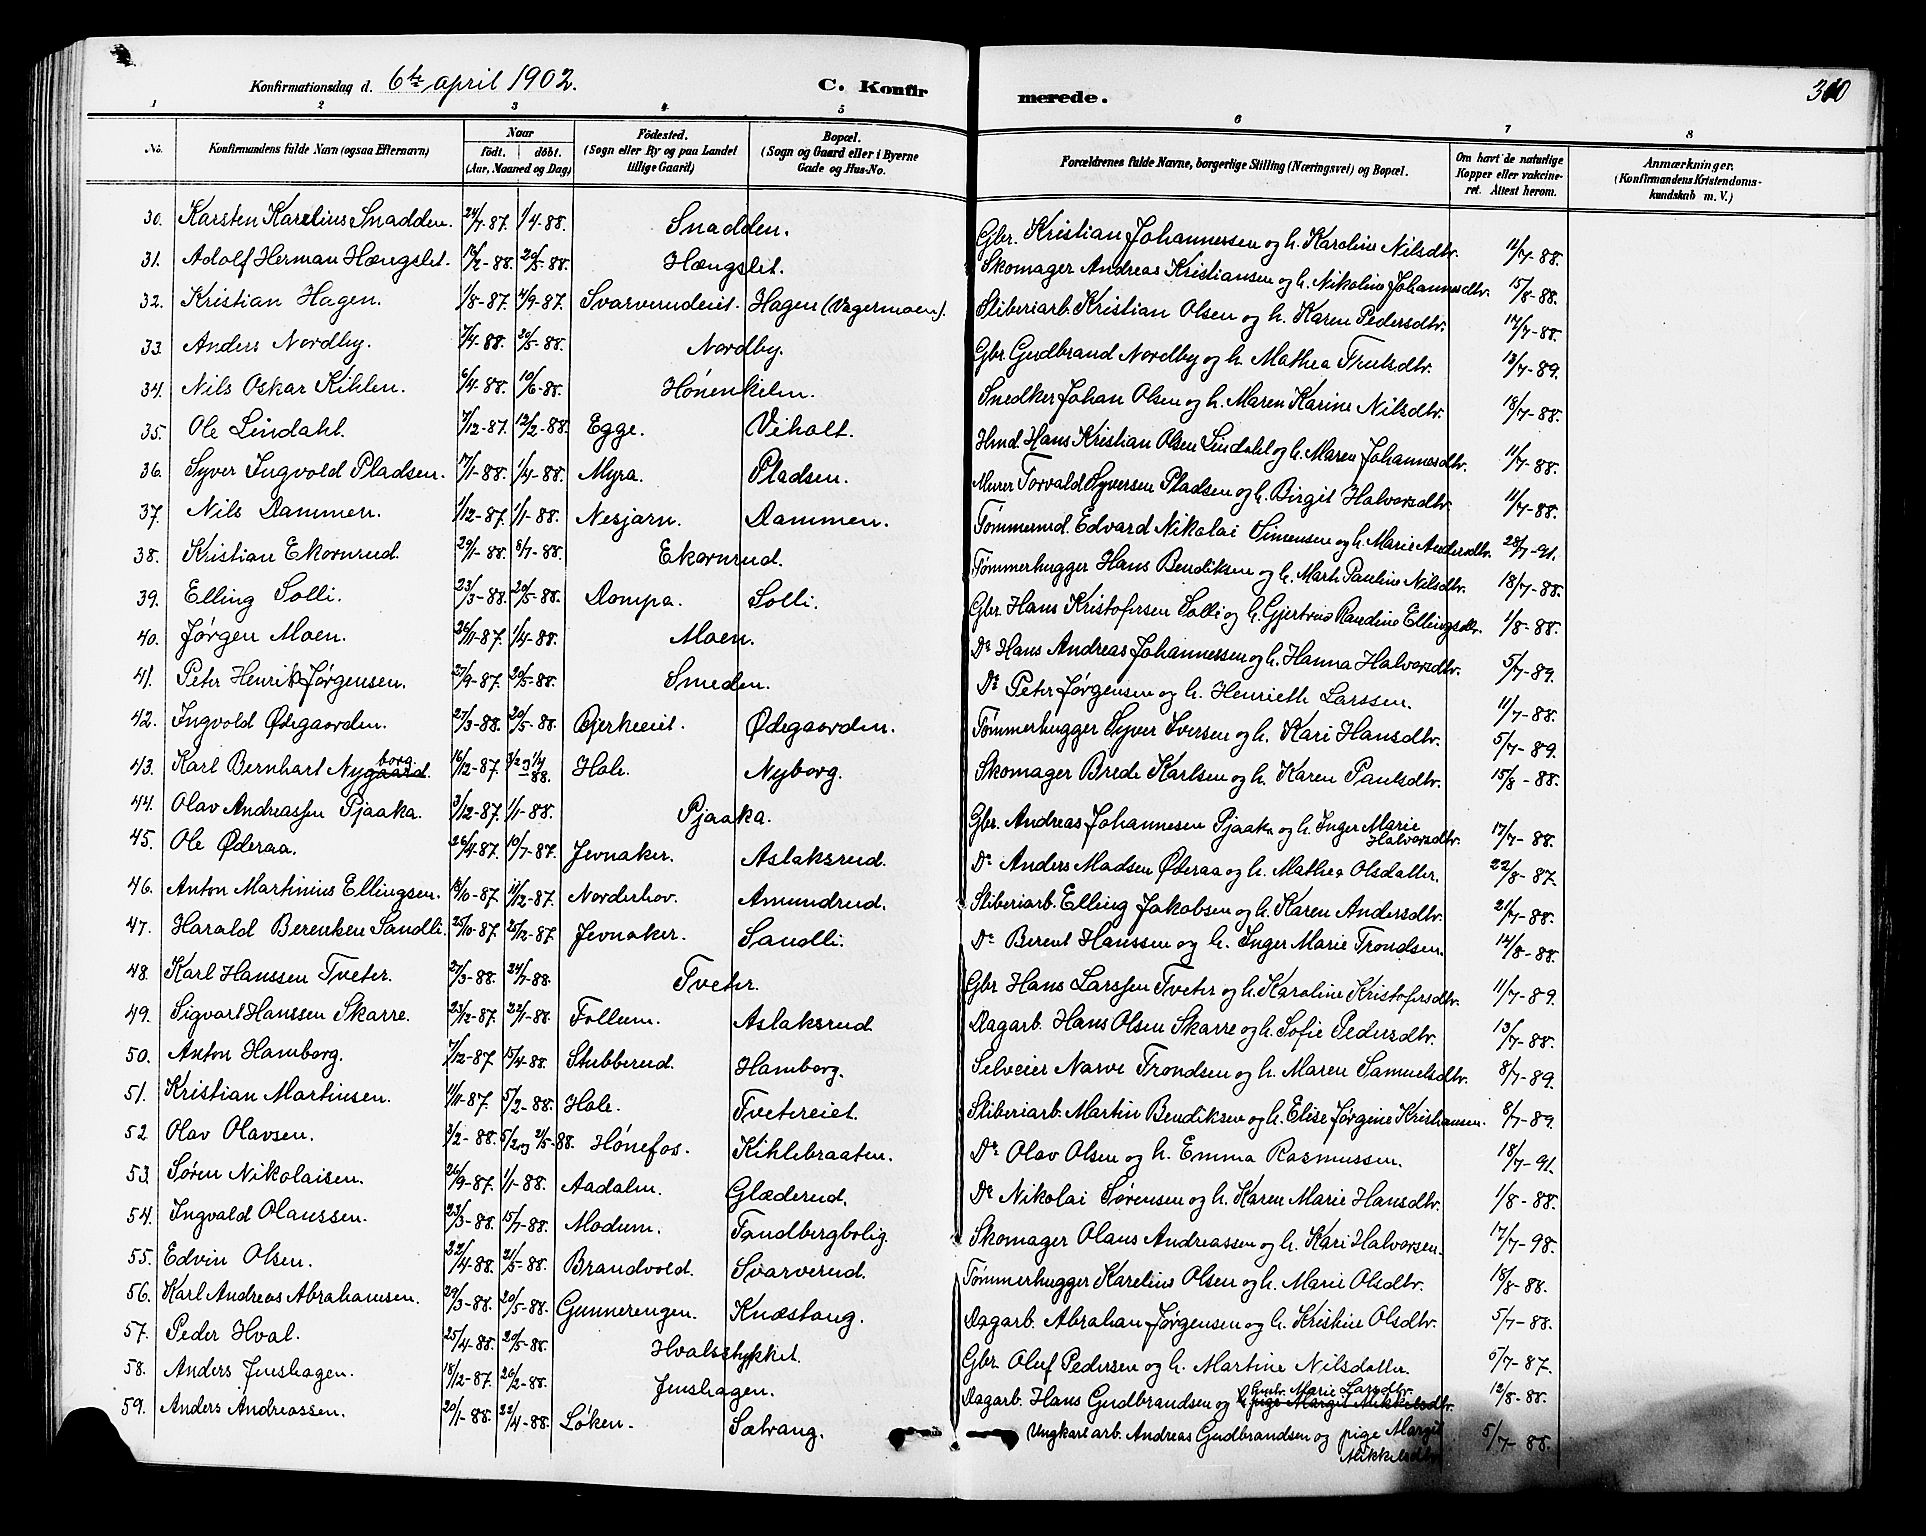 Konfirmationsdag d. 6te april 1902. C. Konfirmerede. 310
1 2 3 4 5 6 7 8
No. Konfirmandens fulde Navn (ogsaa Efternavn) Naar født. døbt. (Aar, Maaned og Dag) Fødested. (Sogn eller By og paa Landet tillige Gaard) Bopæl. (Sogn og Gaard eller i Byerne Gade og Hus-No. Forældrenes fulde Navne, borgerlige Stilling (Næringsvei) og Bopæl. Om havt de naturlige Kopper eller vakcineret. Attest herom. Anmærkninger. (Konfirmandens Kristendomskundskab m. V.)
30. Karsten Karelius Snadden. 24/7-87. 1/4-88. Snadden. Gbr. Kristian Johannersen og h. Karoline Nilsdtr. 11/7-88.
31. Adolf Herman Hængslet. 12/2-88. 20/5-88. Hængslet. Skomager Andreas Kristiansen og h. Nikoline Johannesdtr. 15/8-88.
32. Kristian Hagen. 1/8-87. 4/9-87. Svarverudeiet. Hagen (Vagermoen). Sliberiarb. Kristian Olsen og h. Karen Pedersdtr. 17/7-88.
33. Anders Nordby. 7/4-88. 20/5-88. Nordby. Gbr. Gudbrand Nordby og h. Mathea Trulsdtr. 12/7-89.
34. Nils Oskar Kihlen. 6/4-88. 10/6-88. Hønenkilen. Snedker Johan Olsen og h. Maren Karine Nilsdtr. 18/7-88.
35. Ole Lindahl. 7/12-87. 12/2-88. Egge. Viholt. Hmd. Hans Kristian Olsen Lindahl og h. Maren Johannesdtr. 11/7-88.
36. Syver Ingvold Pladsen. 17/1-88. 1/4-88. Myra. Pladsen. Murer Torvald Syversen Pladsen og h. Birgit Halvorsdtr. 11/7-88.
37. Nils Dammen. 1/12-87. 1/1-88. Nesjarn. Dammen. Tømmermd. Edvard Nikolai Simensen og h. Marie Andersdtr. 28/7-91.
38. Kristian Ekornrud. 29/1-88. 8/7-88. Ekornrud. Tømmerhugger Hans Bendiksen og h. Marth. Pauline Nilsdtr. 18/7-88.
39. Elling Solli. 23/3-88. 20/5-88. Dompa. Solli. Gbr. Hans Kristofersen Solli og h. Gjertrud Randine Ellingsdtr. 1/8-88.
40. Jørgen Moen. 26/11-87. 1/4-88. Moen. Do Hans Andreas Johannessen og h. Hanna Halvorsdtr. 5/7-89.
41. Peter Henrik Jørgensen. 27/9-87. 20/5-88. Smeden. Do Peter Jørgensen og h. Henriette Larssen. 11/7-88.
42. Ingvold Ødegaarden. 27/3-88. 20/5-88. Bjerkeeiet. Ødegaarden. Tømmerhugger Syver Iversen og h. Kari Hansdtr. 5/7-89.
43. Karl Bernhart Nygaard borg. 16/12-87. 3/2 og 1/4 88. Hole. Nyborg. Skomager Brede Karlsen og h. Karen Paulsdtr. 15/8-88.
44. Olav Andreassen Pjaaka. 3/12-87. 1/1-88. Pjaaka. Gbr. Andreas Johannesen Pjaaka og h. Inger Marie Halvorsdtr. 17/7-88.
45. Ole Øderaa. 26/4-87. 10/7-87. Jevnaker. Aslaksrud. Do Anders Madsen Øderaa og h. Mathea Olsdatter. 22/8-87.
46. Anton Martinius Ellingsen. 18/10-87. 11/12-87. Norderhov. Amundrud. Sliberiarb. Elling Jakobsen og h. Karen Andersdtr. 21/7-88.
47. Harald Berentsen Sandli. 25/10-87. 25/12-87. Jevnaker. Sandli. Do Berent Hanssen og h. Inger Marie Trondsen. 14/8-88.
48. Karl Hanssen Tveter. 27/3-88. 24/7-88. Tveter. Gbr. Hans Larssen Tveter og h. Karoline Kristofersdtr. 11/7-89.
49. Sigvart Hanssen Skarre. 23/12-87. 22/1-88. Follum. Aslaksrud. Dagarb. Hans Olsen Skarre og h. Sofie Pedersdtr. 13/7-88.
50. Anton Hamborg. 7/12-87. 15/4-88. Stubberud. Hamborg. Selveier Narve Trondsen og h. Maren Samuelsdtr. 8/7-89.
51. Kristian Martinsen. 11/11-87. 5/2-88. Hole. Tvetereiet. Sliberiarb. Martin Bendiksen og h. Elise Jørgine Kristiansen. 8/7-89.
52. Olav Olavsen. 3/2-88. 5/2 og 21/5-88. Hønefos. Kihlebraaten. Do Olav Olsen og h. Emma Rasmussen. 18/7-91.
53. Søren Nikolaisen. 26/9-87. 1/1-88. Aadalen. Glæderud. Do Nikolai Sørensen og h. Karen Marie Hansdtr. 1/8-88.
54. Ingvald Olaussen. 23/3-88. 15/7-88. Modum. Tandbergbolig. Skomager Olaus Andreassen og h. Kari Halvorsen. 17/7-98.
55. Edvin Olsen. 22/4-88. 21/5-88. Brandvold. Svarverud. Tømmerhugger Karelius Olsen og h. Marie Olsdtr. 18/8-88.
56. Karl Andreas Abrahamsen. 29/3-88. 20/5-88. Gunnerengen. Knæstang. Dagarb. Abraham Jørgensen og h. Kristine Olsdtr. 5/7-88.
57. Peder Hval. 25/4-88. 20/5-88. Hvalsstykket. Gbr. Oluf Pedersen og h. Martine Nilsdatter. 5/7-87.
58. Anders Jenshagen. 18/12-87. 26/2-88. Jenshagen. Dagarb. Hans Gudbrandsen og h. Marie Larsdtr. 12/8-88.
59. Anders Andreassen. 20/1-88. 22/4-88. Løken. Sætrang. Ungkarl arb. Andreas Gudbrandsen og pige Margit Mikkelsdtr. 5/7-88.